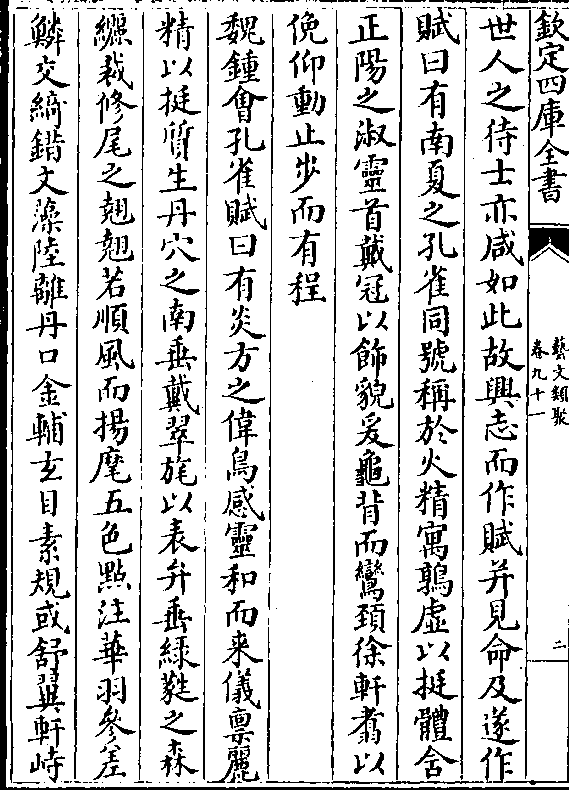 欽定四庫全書
藝文類聚
卷九十一
二
世人之待士亦咸如此故興志而作賦并見命及遂作
賦曰有南夏之孔雀同號稱於火精寓鶉虛以挺體含
正陽之淑靈首戴冠以飾貌爰龜背而鸞頸徐軒翥以
俛仰動止步而有程
魏鍾會孔雀賦曰有炎方之偉鳥感靈和而来儀禀麗
精以挺質生丹穴之南垂戴翠旄以表弁垂綠蕤之森
纚裁修尾之翹翹若順風而揚麾五色點注華羽參差
鱗交綺錯文藻陸離丹口金輔玄目素規或舒翼軒峙